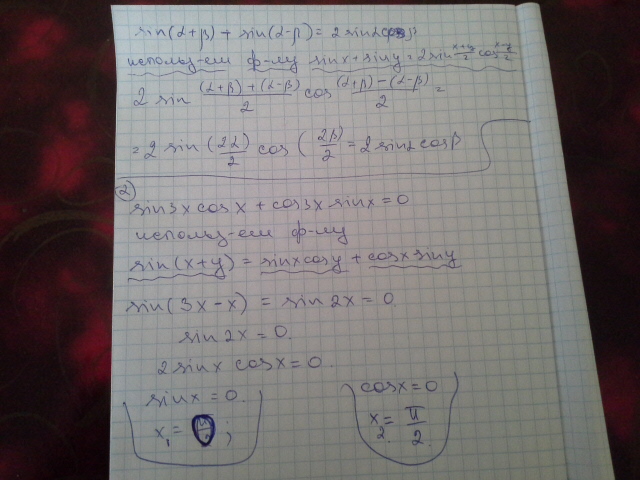 sin(α+β) + sin(α-β) = 2 sinα cosβ
использ-ем ф-лу sinx + siny = 2 sin x+y/2 cos x-y/2
2 sin (α+β)+(α-β)/2 cos (α+β)-(α-β)/2 =
= 2 sin (2α/2) cos ( 2β/2 = 2 sinα cosβ
2
sin3x cosx + cos3x sinx = 0
использ-ем ф-лу
sin(x+y) = sinxcosy + cosx siny
sin(3x-x) = sin2x = 0
sin2x = 0.
2 sinx cosx = 0.
sinx = 0.
x₁ = ;
cosx = 0
x₂ = π/2.